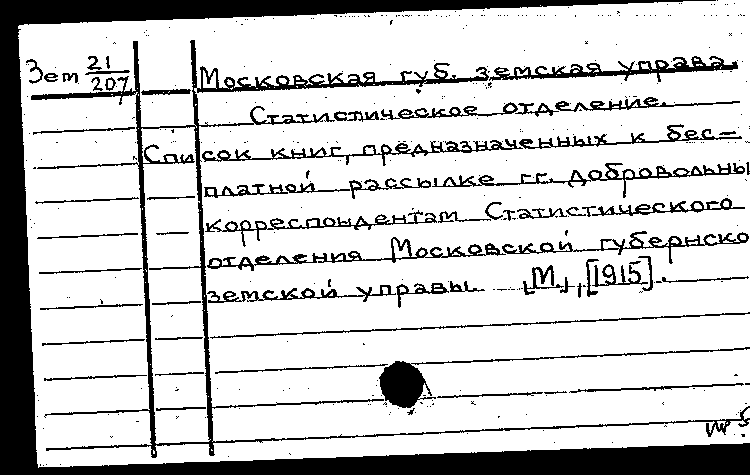 Зем 21/207 Московская губ. земская управа.
Статистическое отделение.
Список книг, предназначенных к бес-
платной рассылке гг. добровольны
корреспондентам Статистического
отделения Московской губернско
земской управы. [М.], [1915].